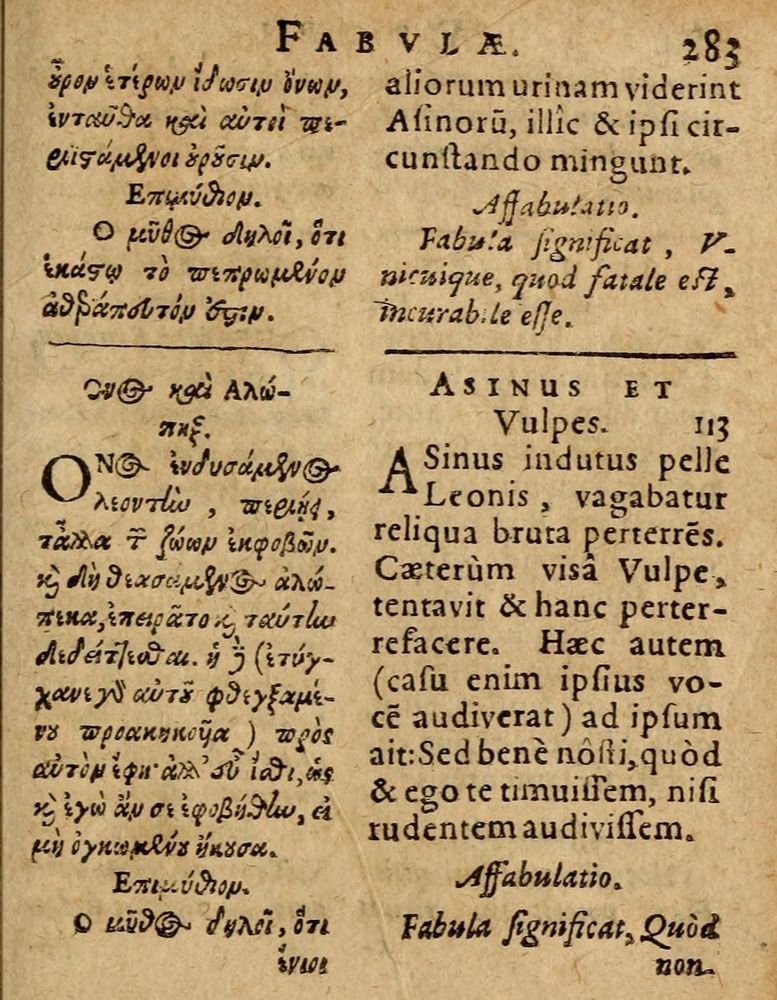 FABVLÆ. 283
οὖρον ἑτέρων ἴδωσιν ὄνων,
ἐνταῦθα καὶ αὐτοὶ πε-
ριϊστάμενοι οὐροῦσιν.
Επιμύθιον.
Ο μῦθος δηλοῖ, ὅτι
ἑκάστῳ τὸ πεπρωμένον
ἀθεράπευτόν ἐστιν.
Ονος καὶ Αλώ-
πηξ.
ΟΝος ἐνδυσάμενος
λεοντῆν, περιῄει,
τἆλλα τῶν ζώων ἐκφοβῶν.
καὶ δὴ θεασάμενος ἀλώ-
πεκα, ἐπειρᾶτο καὶ ταύτην
δεδίττεσθαι. ἡ δὲ (ἐτύγ-
χανε γὰρ αὐτοῦ φθεγξαμέ-
νου προακηκουῖα) πρὸς
αὐτὸν ἔφη· ἀλλ' εὖ ἴσθι, ὡς
καὶ ἐγὼ ἄν σε ἐφοβήθην, εἰ
μὴ ὀγκωμένου ἤκουσα.
Επιμύθιον.
Ο μῦθος δηλοῖ, ὅτι
ἔνιοι
aliorum urinam viderint
Aſinorū, illîc & ipſi cir-
cunſtando mingunt.
Affabulatio.
Fabula ſignificat, V-
nicuique, quod fatale eſt,
incurabile eſſe.
ASINUS ET
Vulpes. 113
ASinus indutus pelle
Leonis, vagabatur
reliqua bruta perterrēs.
Cæterùm visâ Vulpe,
tentavit & hanc perter-
refacere. Hæc autem
(caſu enim ipſius vo-
cē audiverat) ad ipſum
ait: Sed benè nôſti, quòd
& ego te timuiſſem, niſi
rudentem audiviſſem.
Affabulatio.
Fabula ſignificat, Quòd
non.